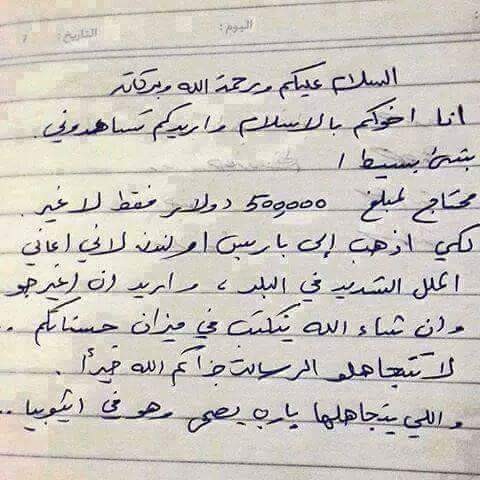 اليوم : التاريخ :
السلام عليكم ورحمة الله وبركاته
انا اخوكم بالاسلام واريدكم تساهدوني
بشئ بسيط !
محتاج لمبلغ 500,000 دولار فقط لا غير .
لكي اذهب إلى باريس او لندن لاني اعاني
الملل الشديد في البلد ، واريد ان اغير جو
وان شاء الله ينكتب في ميزان حسناتكم ..
لا تتجاهلو الرسالة جزاكم الله خيرأ .
واللي يتجاهلها يارب يصحى وهو في اثيوبيا ..